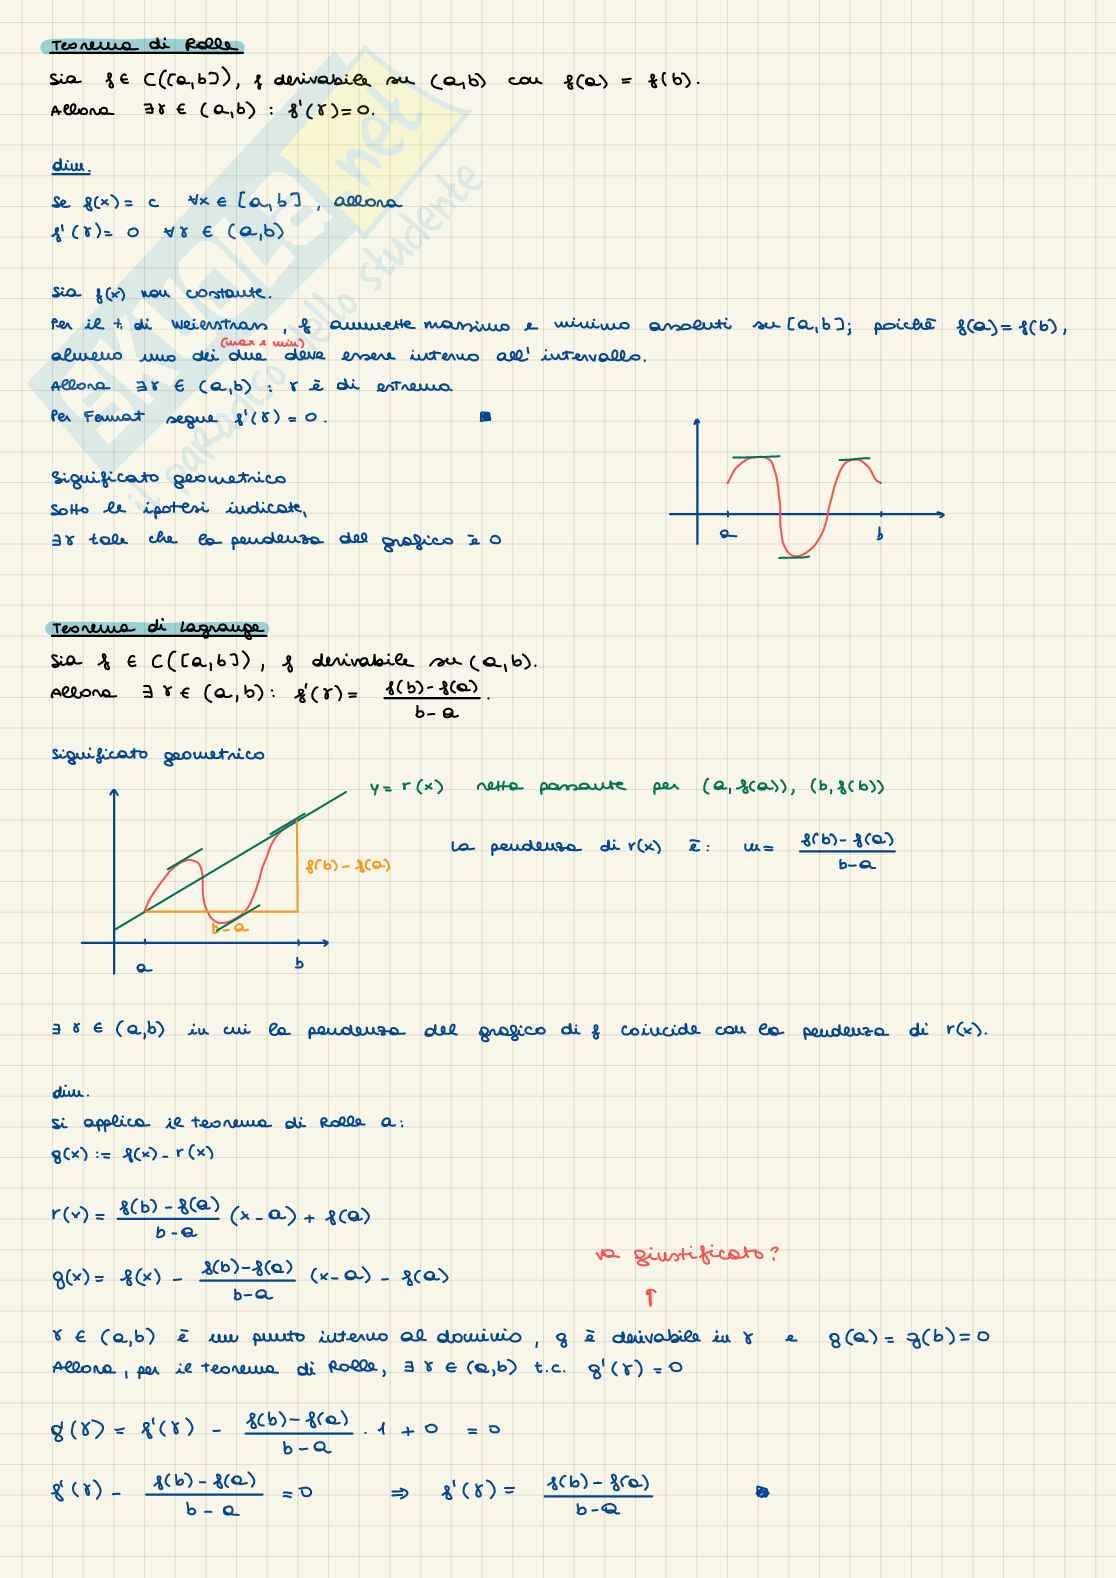 Teorema di Rolle
Sia f ∈ C([a,b]), f derivabile su (a,b) con f(a) = f(b).
Allora ∃γ ∈ (a,b) : f'(γ)=0.
dim.
Se f(x)= c ∀x ∈ [a,b], allora
f'(γ)= 0 ∀γ ∈ (a,b)
Sia f(x) non costante.
Per il t. di Weierstrass, f ammette massimo e minimo assoluti su [a,b]; poichè f(a)=f(b),
(max e min)
almeno uno dei due deve essere interno all'intervallo.
Allora ∃γ ∈ (a,b) : γ è di estremo
Per Fermat segue f'(γ) = 0. ■
Significato geometrico
Sotto le ipotesi indicate,
∃γ tale che la pendenza del grafico è 0
a b
Teorema di Lagrange
Sia f ∈ C([a,b]), f derivabile su (a,b).
Allora ∃γ ∈ (a,b): f'(γ)= (f(b)-f(a))/(b-a).
Significato geometrico
y = r(x) retta passante per (a,f(a)), (b,f(b))
La pendenza di r(x) è: m= (f(b)-f(a))/(b-a)
f(b)-f(a)
b-a
a b
∃ γ ∈ (a,b) in cui la pendenza del grafico di f coincide con la pendenza di r(x).
dim.
Si applica il teorema di Rolle a:
g(x) := f(x) - r(x)
r(x) = (f(b)-f(a))/(b-a) (x-a) + f(a)
va giustificato?
g(x)= f(x) - (f(b)-f(a))/(b-a) (x-a) - f(a)
↑
γ ∈ (a,b) è un punto interno al dominio, g è derivabile in γ e g(a) = g(b) = 0
Allora, per il teorema di Rolle, ∃ γ ∈ (a,b) t.c. g'(γ) = 0
g'(γ) = f'(γ) - (f(b)-f(a))/(b-a) · 1 + 0 = 0
f'(γ) - (f(b)-f(a))/(b-a) = 0 ⇒ f'(γ) = (f(b)-f(a))/(b-a) ■
SKUOLA.net
il paradiso dello studente